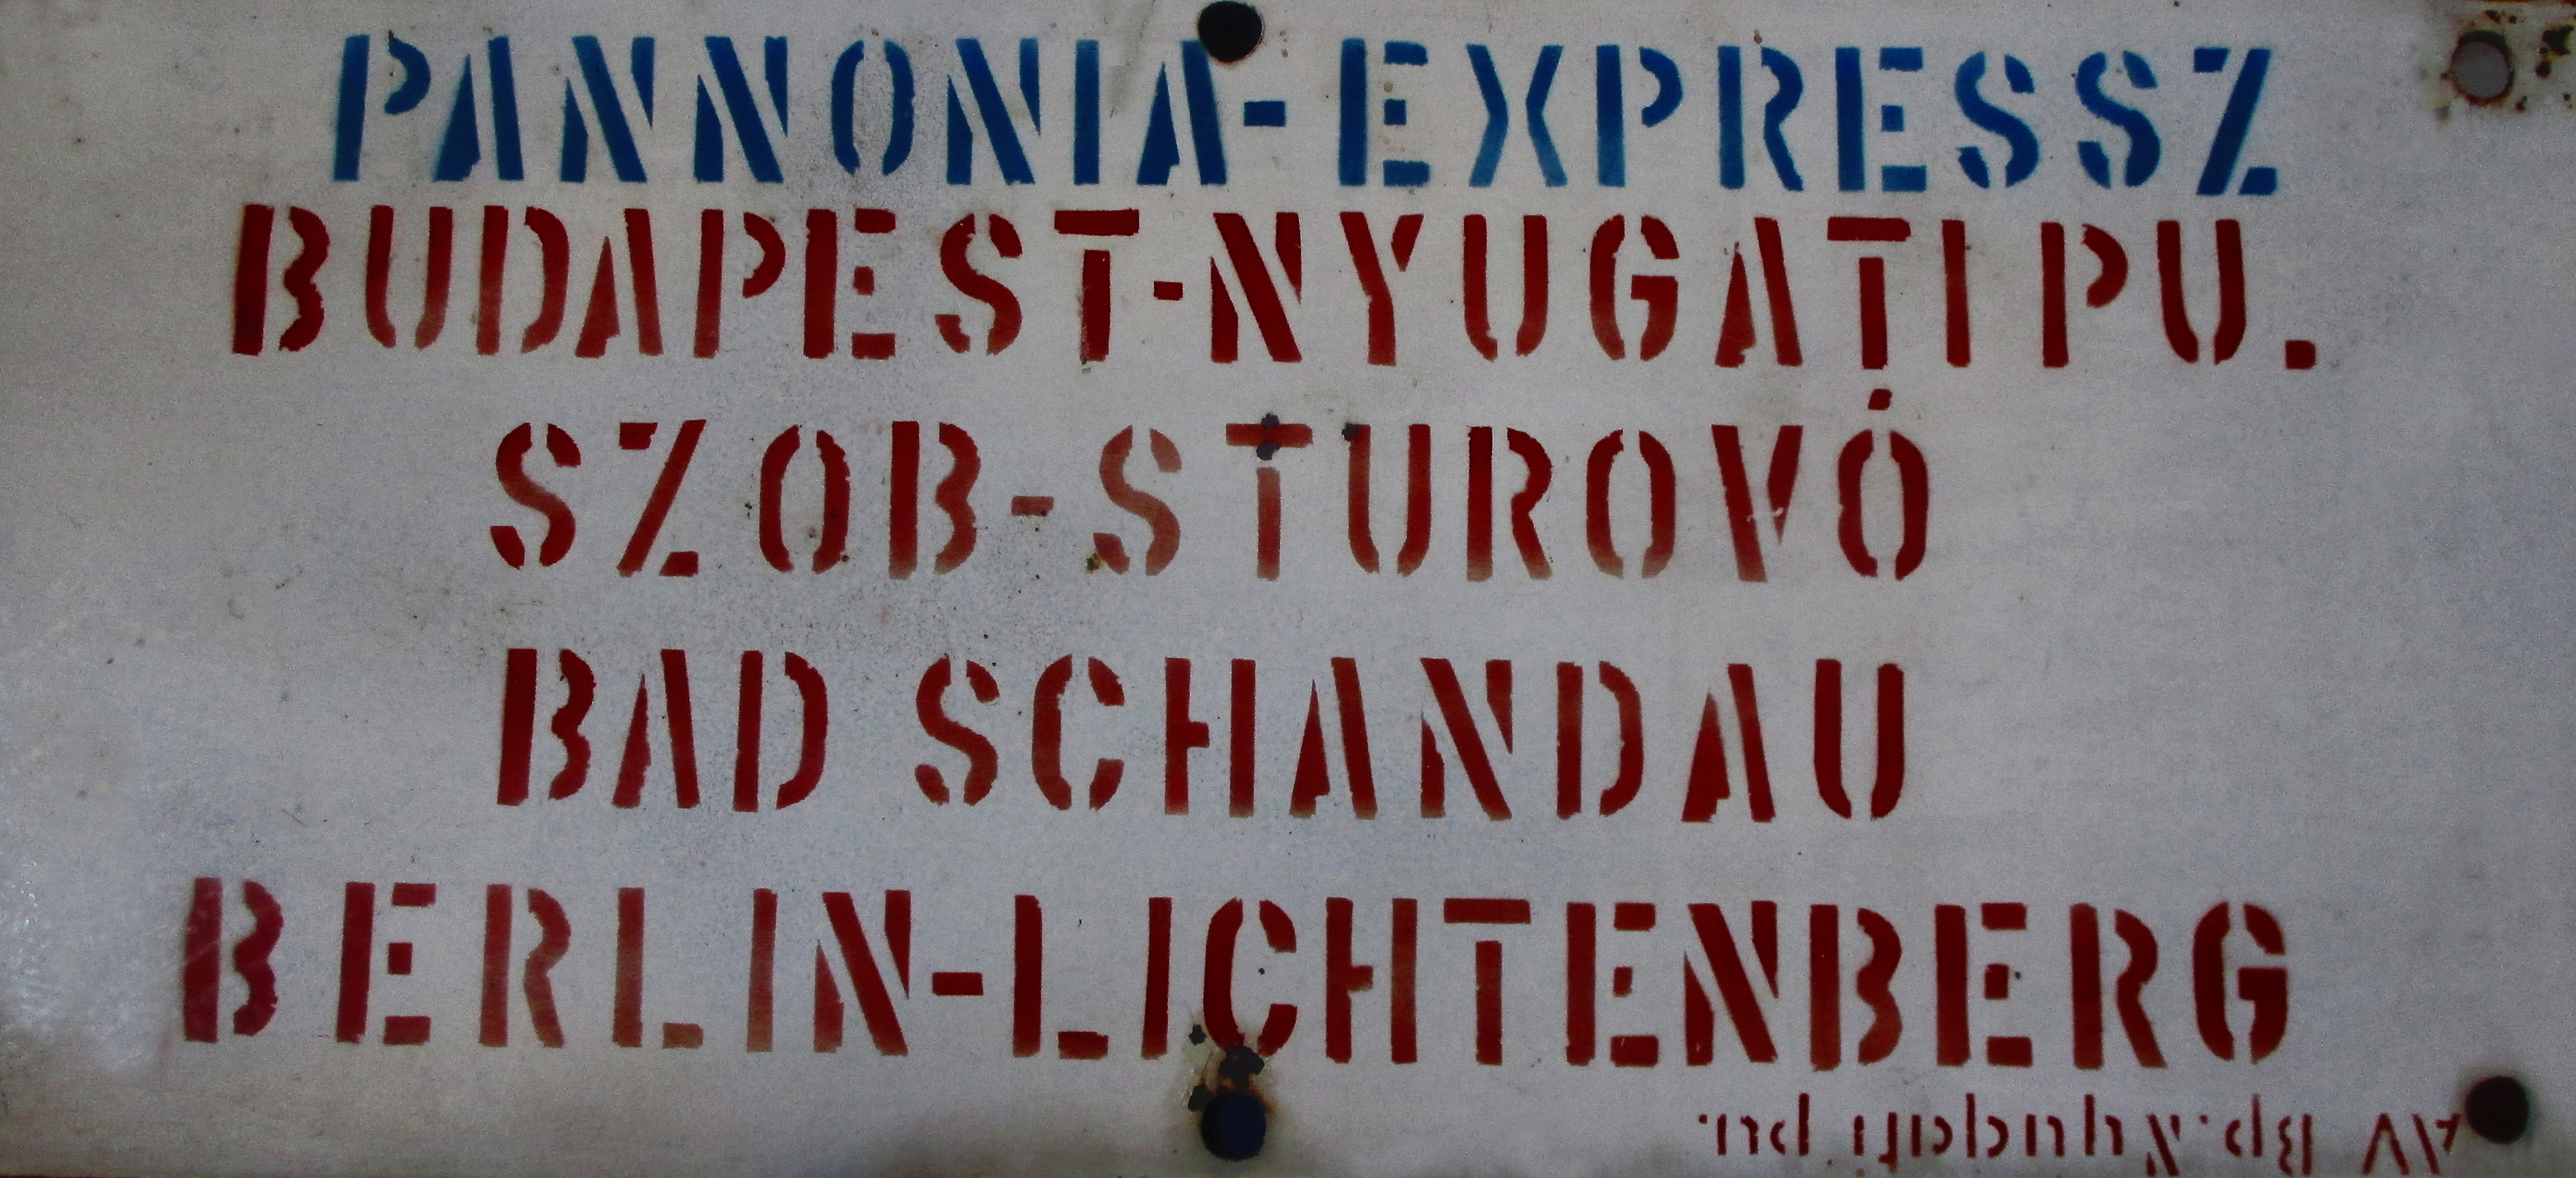 PANNONIA-EXPRESSZ
BUDAPEST-NYUGATI PU.
SZOB-STUROVÓ
BAD SCHANDAU
BERLIN-LICHTENBERG
AV Bp. Nyugati pu.